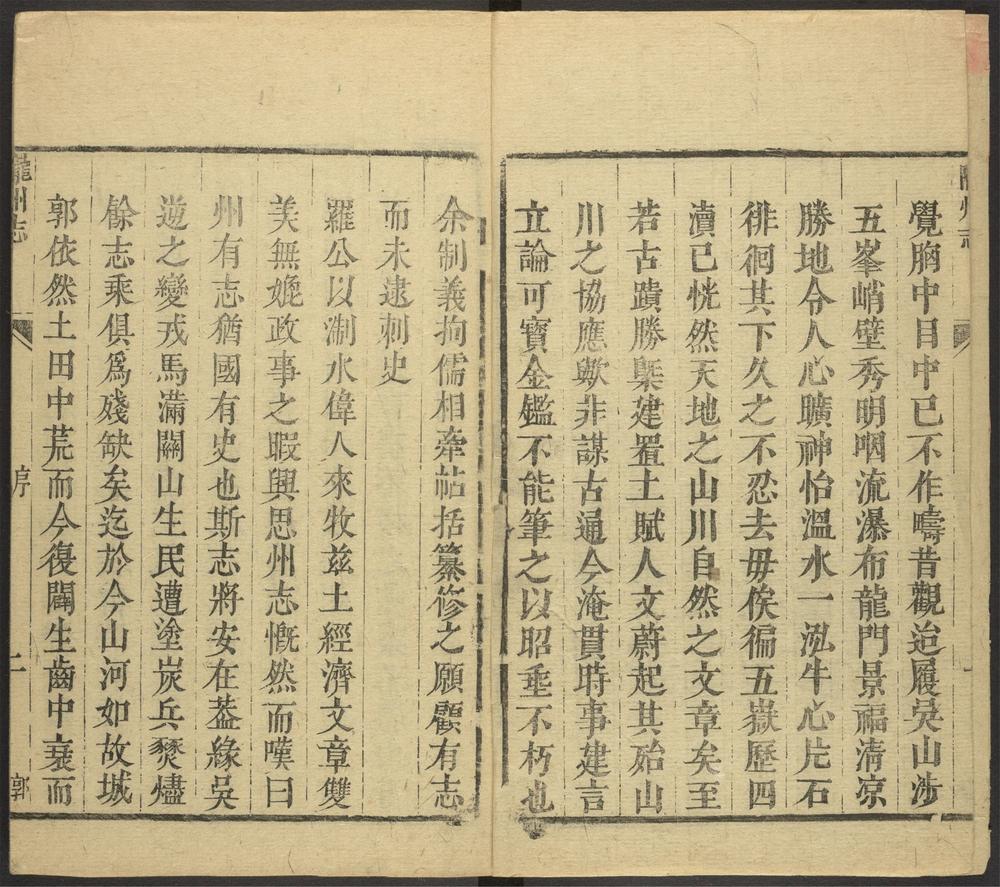 隴州志
覺胸中目中已不作疇昔觀迨履吳山涉
五峯峭壁秀明咽流瀑布龍門景福淸凉
勝地令人心曠神怡溫水一泓牛心片石
徘徊其下久之不忍去毋俟徧五嶽歷四
瀆已恍然天地之山川自然之文章矣至
若古蹟勝槩建置土賦人文蔚起其殆山
川之協應歟非謀古通今淹貫時事建言
立論可寶金鑑不能筆之以昭垂不朽也
余制義拘儒相牽帖括纂修之願顧有志
而未逮刺史
羅公以淛水偉人來牧兹土經濟文章雙
美無媲政事之暇興思州志慨然而嘆曰
州有志猶國有史也斯志將安在葢緣吳
逆之變戎馬滿關山生民遭塗炭兵燹燼
餘志乘俱爲殘缺矣迄於今山河如故城
郭依然土田中荒而今復闢生齒中衰而
隴州志
序
二
郭